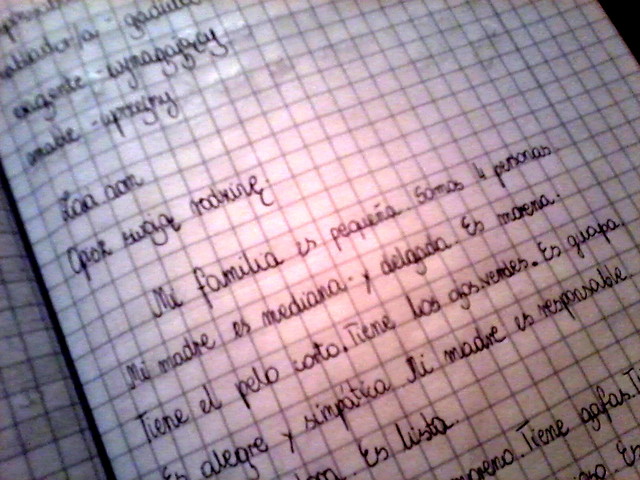 hablador/a - gaduła
exigente - wymagający
amable - uprzejmy
Zad dom
Opisz swoją rodzinę.
Mi familia es pequeña. Somos 4 personas
Mi madre es mediana y delgada. Es morena.
Tiene el pelo corto. Tiene los ojos verdes. Es guapa.
Es alegre y simpática. Mi madre es responsable
Es lista.
moreno. Tiene gafas.